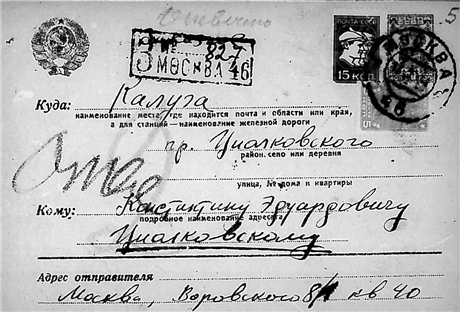 5
З № 824
МОСКВА 46
ПОЧТА СССР
15 КОП.
МОСКВА
46
Куда: Калуга
наименование места, где находится почта и области или края,
а для станций—наименование железной дороги
пр. Циолковского
район, село или деревня
улица, № дома и квартиры
Кому: Константину Эдуардовичу
подробное наименование адресата
Циолковскому
Адрес отправителя
Москва, Воровского 8/1 кв 40